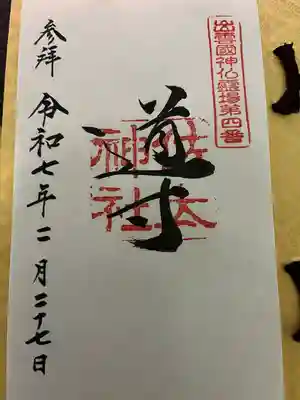 出雲國神仏霊場第四番
導
佐太
神社
参拝 令和七年二月二十七日